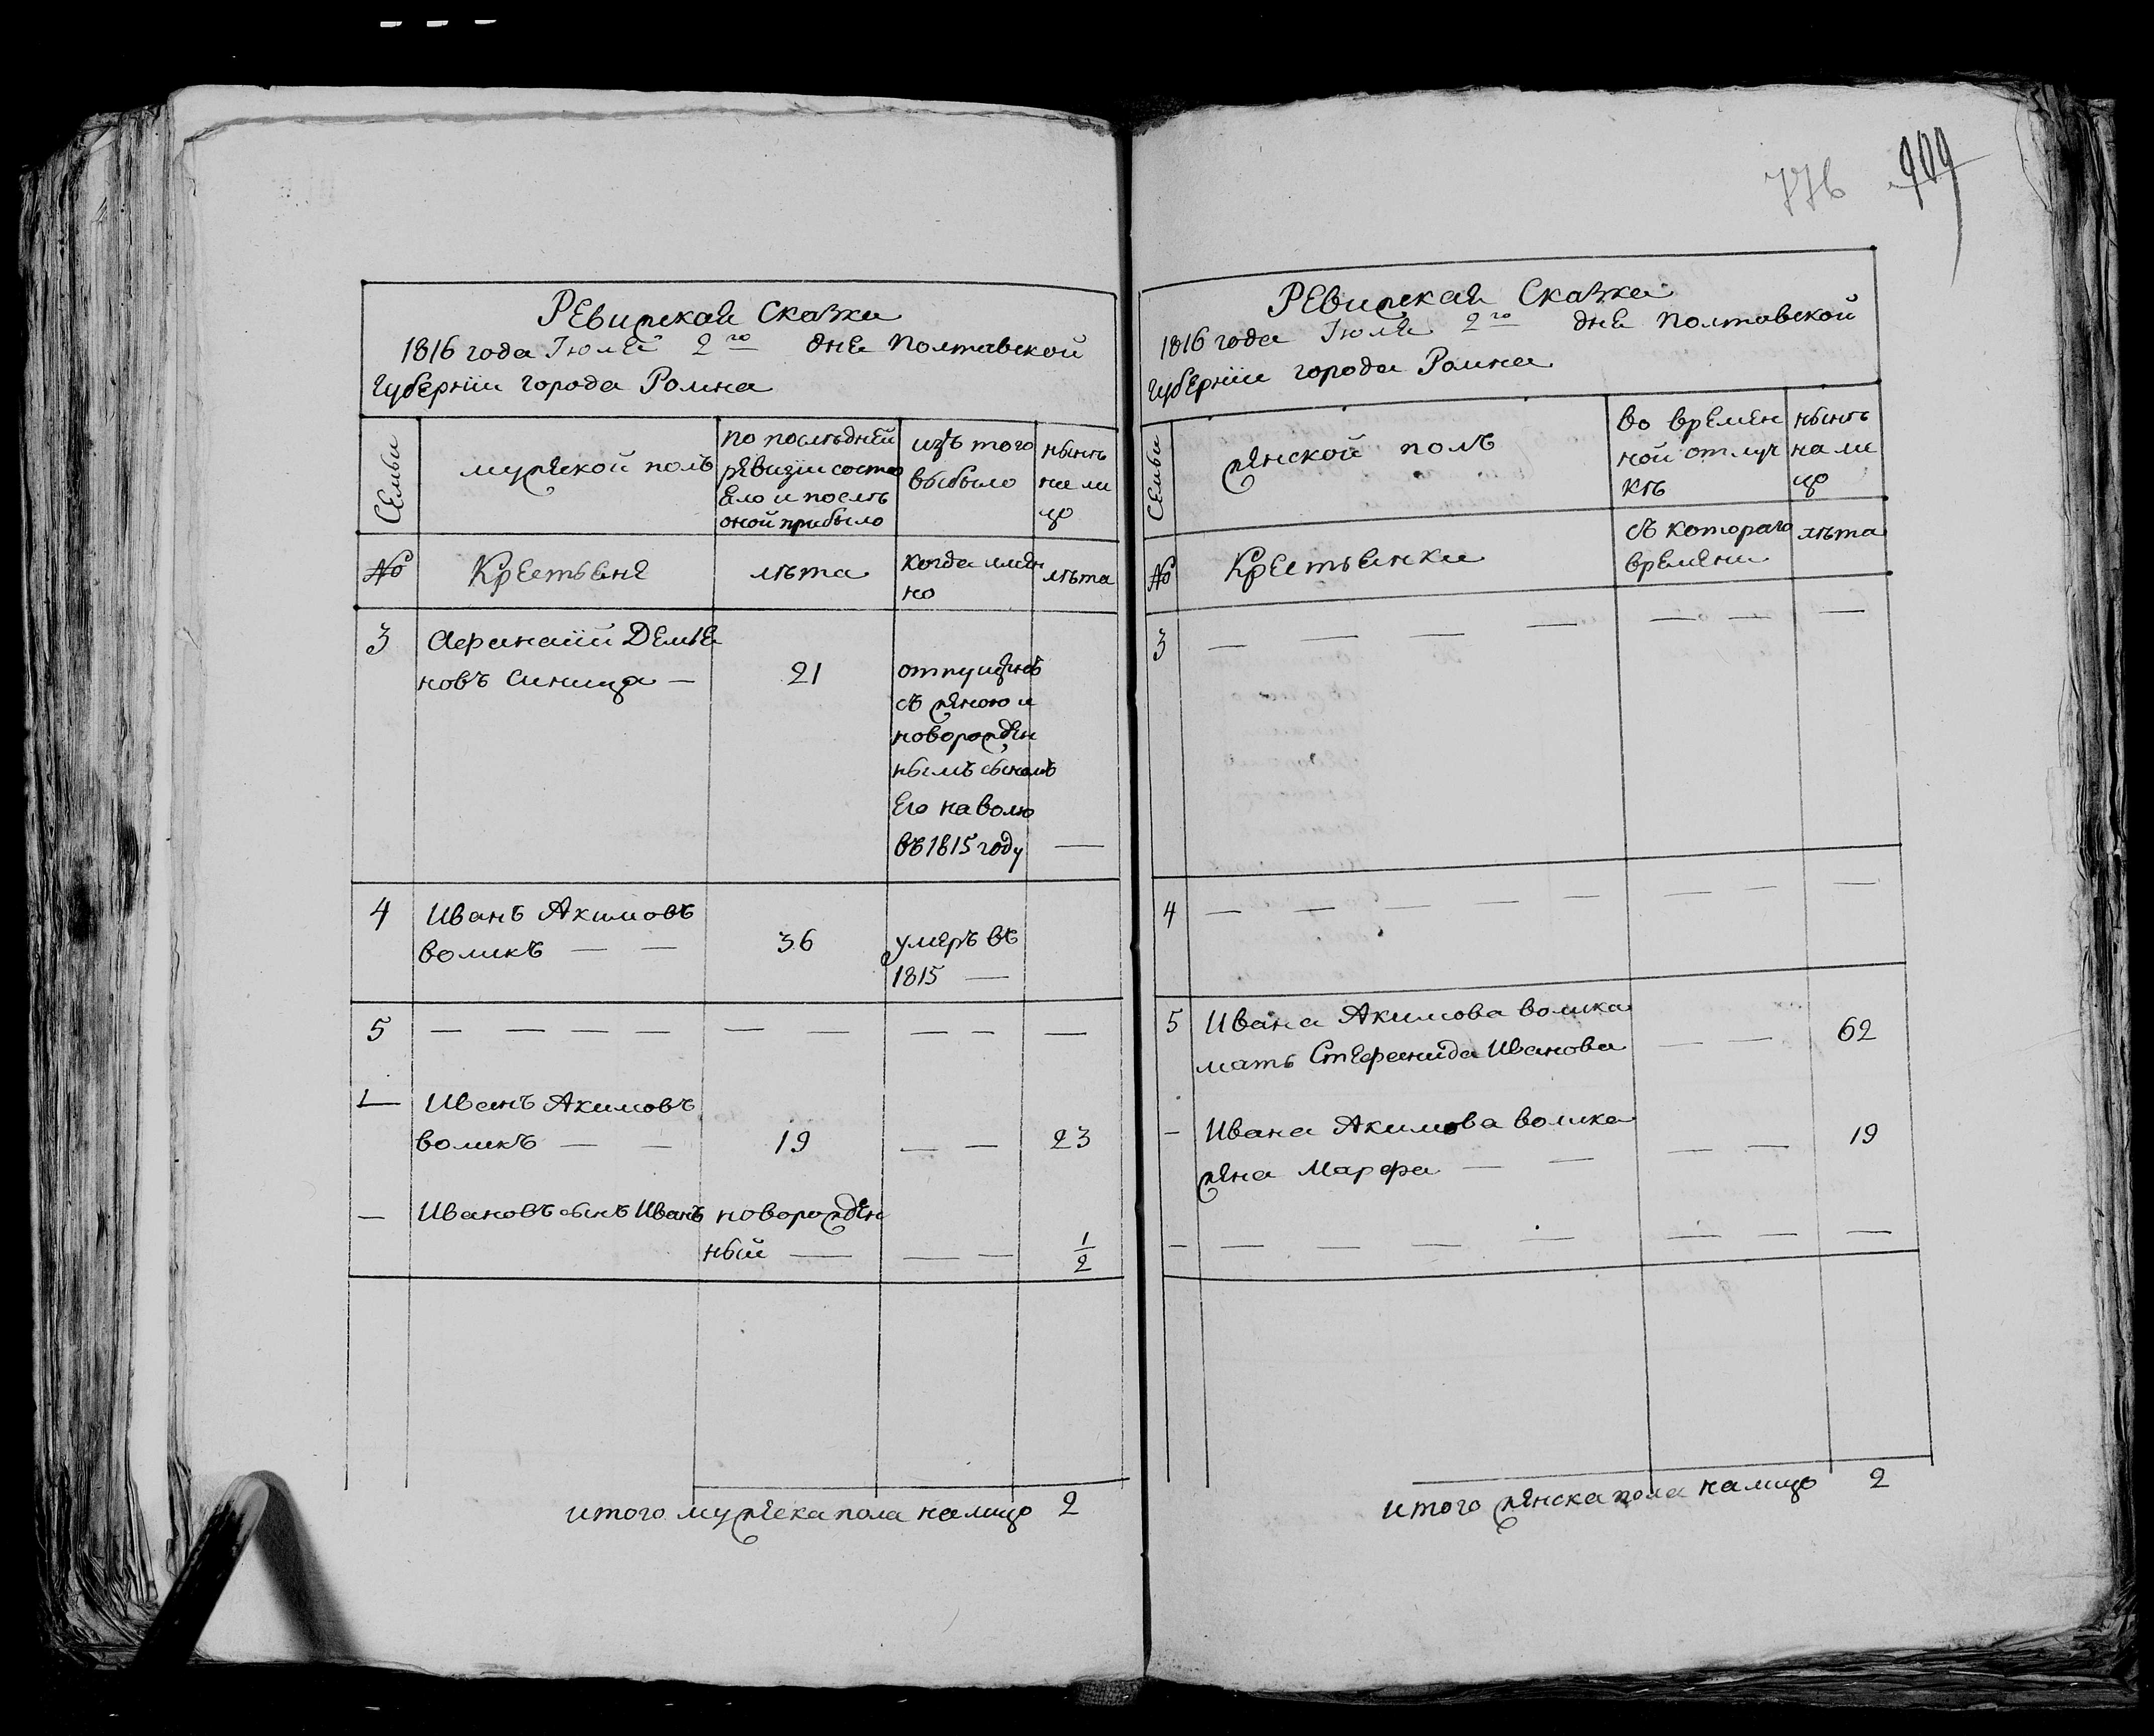 776 909
Ревижская Сказка
1816 года Июля 2го дня Полтавской
Губернїи города Ромна
Семьи
мужской полъ
по послѣдней
ревизіи состо
яло и послѣ
оной прибыло
изъ того
выбыло
нынѣ
на ли
цо
№
Крестьяне
лѣта
когда имян
но
лѣта
3
Афанасїй Демья
новъ Синица —
21
отпущенъ
съ женою и
новорожден
нымъ сыномъ
его на волю
въ 1815 году —
4
Иванъ Акимовъ
воликъ — —
36
умеръ въ
1815 —
5 — — — — — — — — —
— Иванъ Акимовъ
воликъ — — 19 — — 23
— Ивановъ сынъ Иванъ новорожден
ный — — — 1/2
итого мужеска пола налицо 2
Ревижская Сказка
1816 года Июля 2го дня Полтавской
Губернїи города Ромна
Семьи
женской полъ
во времян
ной отлуч
кѣ
нынѣ
на ли
цо
№
Крестьянки
съ котораго
времяни
лѣта
3 — — — — — — —
4 — — — — — — — —
5 Ивана Акимова волика
мать Стефанида Иванова — — 62
— Ивана Акимова волика
жена Марфа — — — — 19
— — — — — — — —
итого женска пола налицо 2